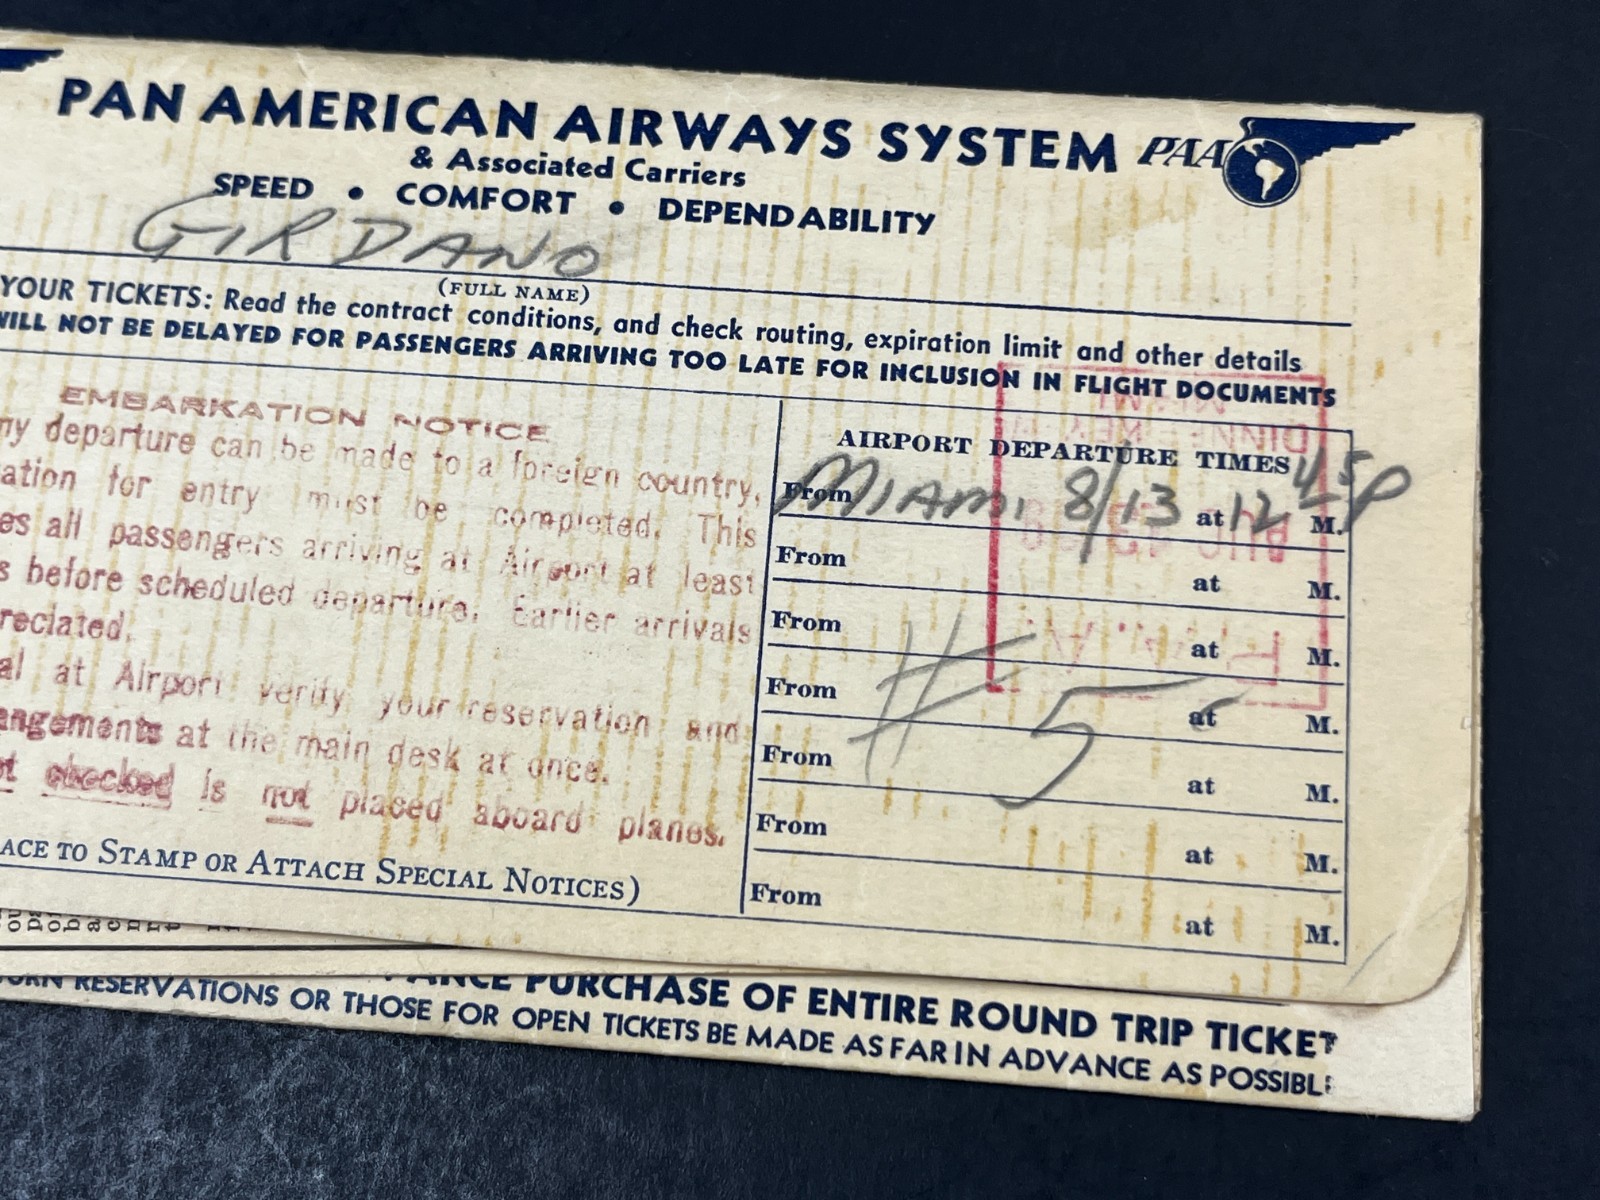 PAN AMERICAN AIRWAYS SYSTEM PAA
& Associated Carriers
SPEED • COMFORT • DEPENDABILITY
GIRDANO
(FULL NAME)
YOUR TICKETS: Read the contract conditions, and check routing, expiration limit and other details
WILL NOT BE DELAYED FOR PASSENGERS ARRIVING TOO LATE FOR INCLUSION IN FLIGHT DOCUMENTS
EMBARKATION NOTICE
ny departure can be made to a foreign country,
ation for entry must be completed. This
es all passengers arriving at Airport at least
s before scheduled departure. Earlier arrivals
reciated.
al at Airport verify your reservation and
angements at the main desk at once.
t checked is not placed aboard planes.
ACE TO STAMP OR ATTACH SPECIAL NOTICES)
AIRPORT DEPARTURE TIMES
From MIAMI 8/13 at 12 45 P M.
From at M.
From at M.
From at M.
From at M.
From at M.
From at M.
# 5
PURCHASE OF ENTIRE ROUND TRIP TICKET
URN RESERVATIONS OR THOSE FOR OPEN TICKETS BE MADE AS FAR IN ADVANCE AS POSSIBLE